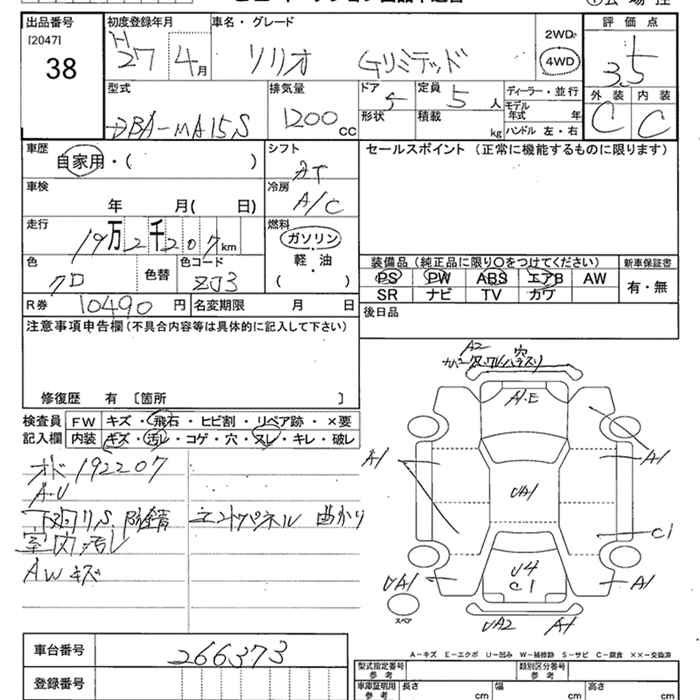 出品番号
[2047]
38
初度登録年月
H
27 4月
車名・グレード
ソリオ Gリミテッド
2WD
4WD
評価点
3.5
外装 内装
C C
型式
DBA-MA15S
排気量
1200cc
ドア 5
形状
定員 5人
積載 kg
ディーラー・並行
モデル年式 年
ハンドル 左・右
車歴
自家用・( )
シフト
AT
セールスポイント (正常に機能するものに限ります)
車検
年 月( 日)
冷房
A/C
走行
19万2千207km
燃料
ガソリン
軽・油
( )
色
色替
色コード
ZJ3
R券 10490円
名変期限 月 日
装備品(純正品に限り○をつけてください)
PS PW ABS エアB AW
SR ナビ TV カワ
新車保証書
有・無
後日品
注意事項申告欄(不具合内容等は具体的に記入して下さい)
修復歴 有 〔箇所 〕
検査員記入欄
FW キズ・飛石・ヒビ割・リペア跡・×要
内装 キズ・汚レ・コゲ・穴・スレ・キレ・破レ
オド 192207
A・U
下廻りS 防錆 エンドパネル 曲がり
室内汚レ
AWキズ
A2
A・E
A1
A1
UA1
C1
UA1
U4
C1
A1
UA2 A1
スペア
A－キズ E－エクボ U－凹ミ W－補修跡 S－サビ C－腐食 ××－交換済
車台番号
266373
登録番号
型式指定番号
参考
類別区分番号
参考
車庫証明用
参考
長さ cm
幅 cm
高さ cm